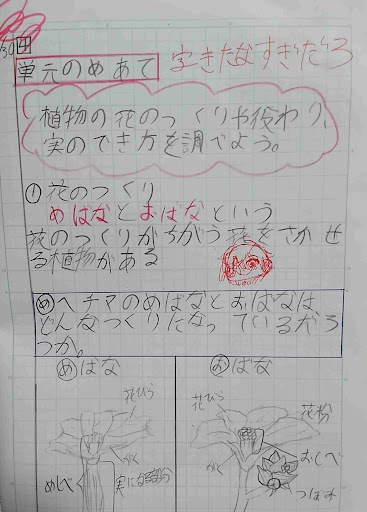 /30 田
単元のめあて
字きたなすぎだろ
植物の花のつくりや役わり、
実のでき方を調べよう。
① 花のつくり
めばなとおばなという
花のつくりがちがう花をさかせ
る植物がある
め ヘチマのめばなとおばなは
どんなつくりになっているだろ
うか。
め ばな
お ばな
花びら
がく
めしべ
実になる部分
花びら
花粉
がく
おしべ
つぼみ